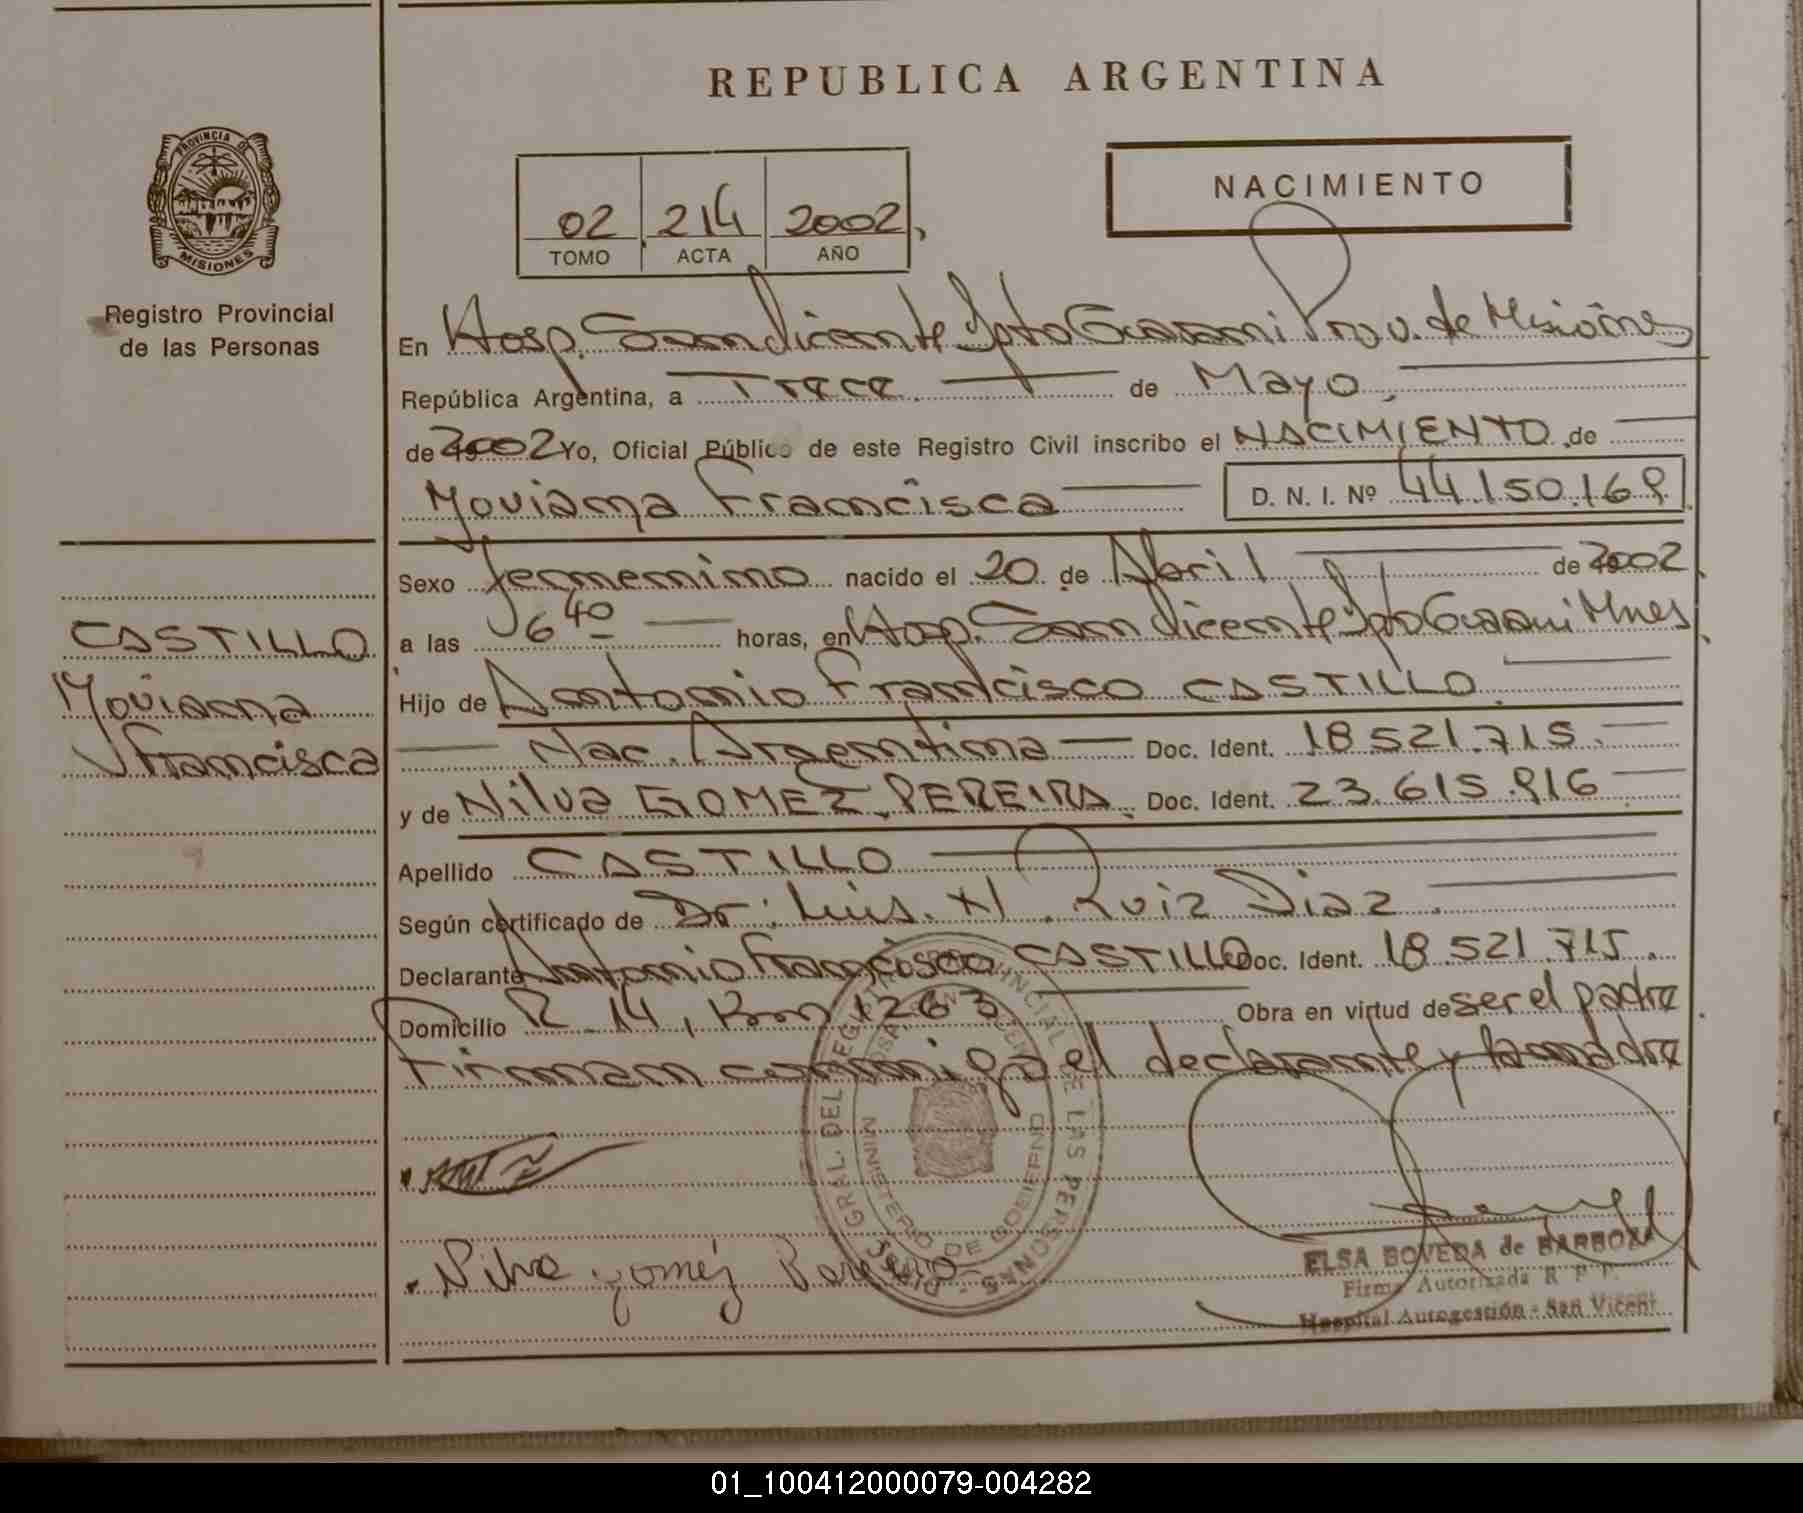 REPUBLICA ARGENTINA
PROVINCIA DE
MISIONES
Registro Provincial
de las Personas
02 214 2002
TOMO ACTA AÑO
NACIMIENTO
En Hosp. San Vicente Dpto Guarani Prov. de Misiones
República Argentina, a Trece de Mayo
de 2002 Yo, Oficial Público de este Registro Civil inscribo el NACIMIENTO de
Yoviana Francisca D. N. I. Nº 44.150.169
Sexo femenino nacido el 20 de Abril de 2002
a las 6 40 horas, en Hosp. San Vicente Dpto Guarani Mnes
Hijo de Antonio Francisco CASTILLO
Nac. Argentina Doc. Ident. 18.521.715.
y de Nilva GOMEZ PEREIRA Doc. Ident. 23.615.916
Apellido CASTILLO
Según certificado de Dr. Luis. H. Ruiz Diaz
Declarante Antonio Francisco CASTILLO Doc. Ident. 18.521.715.
Domicilio R. 14, Km 1263 Obra en virtud de ser el padre
Firman conmigo el declarante y la madre
CASTILLO
Yoviana
Francisca
Nilva gomez Pereira
MINISTERIO DE GOBIERNO
ELSA BOVEDA de BARBOZA
Firma Autorizada R P P.
Hospital Autogestión - San Vicent
01_100412000079-004282